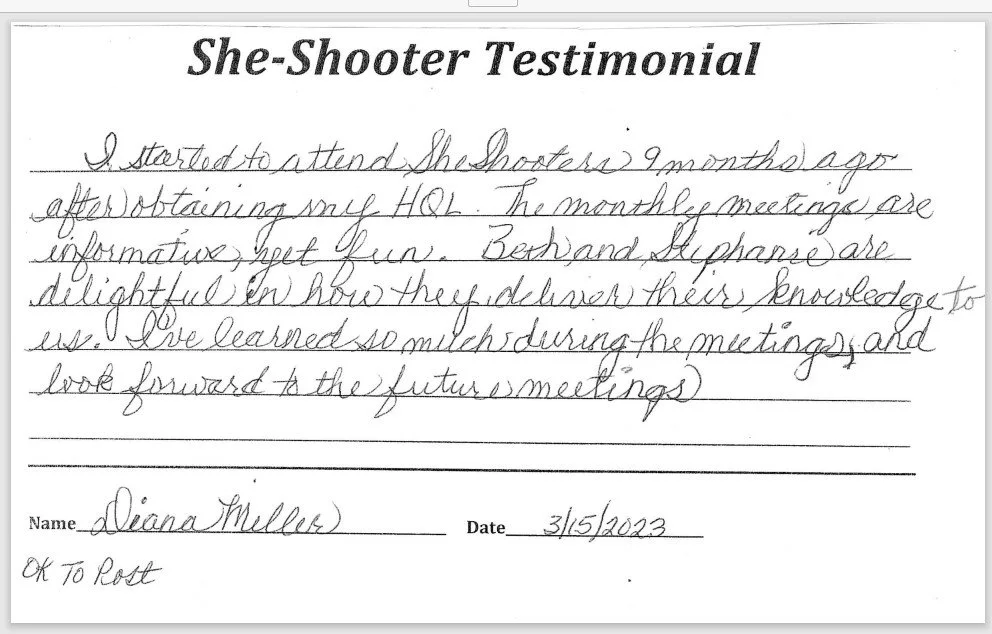 She-Shooter Testimonial
I started to attend She Shooters 9 months ago
after obtaining my HQL. The monthly meetings are
informative, yet fun. Beth and Stephanie are
delightful in how they deliver their knowledge to
us. I've learned so much during the meetings, and
look forward to the future meetings
Name Diana Miller Date 3/15/2023
OK To Post